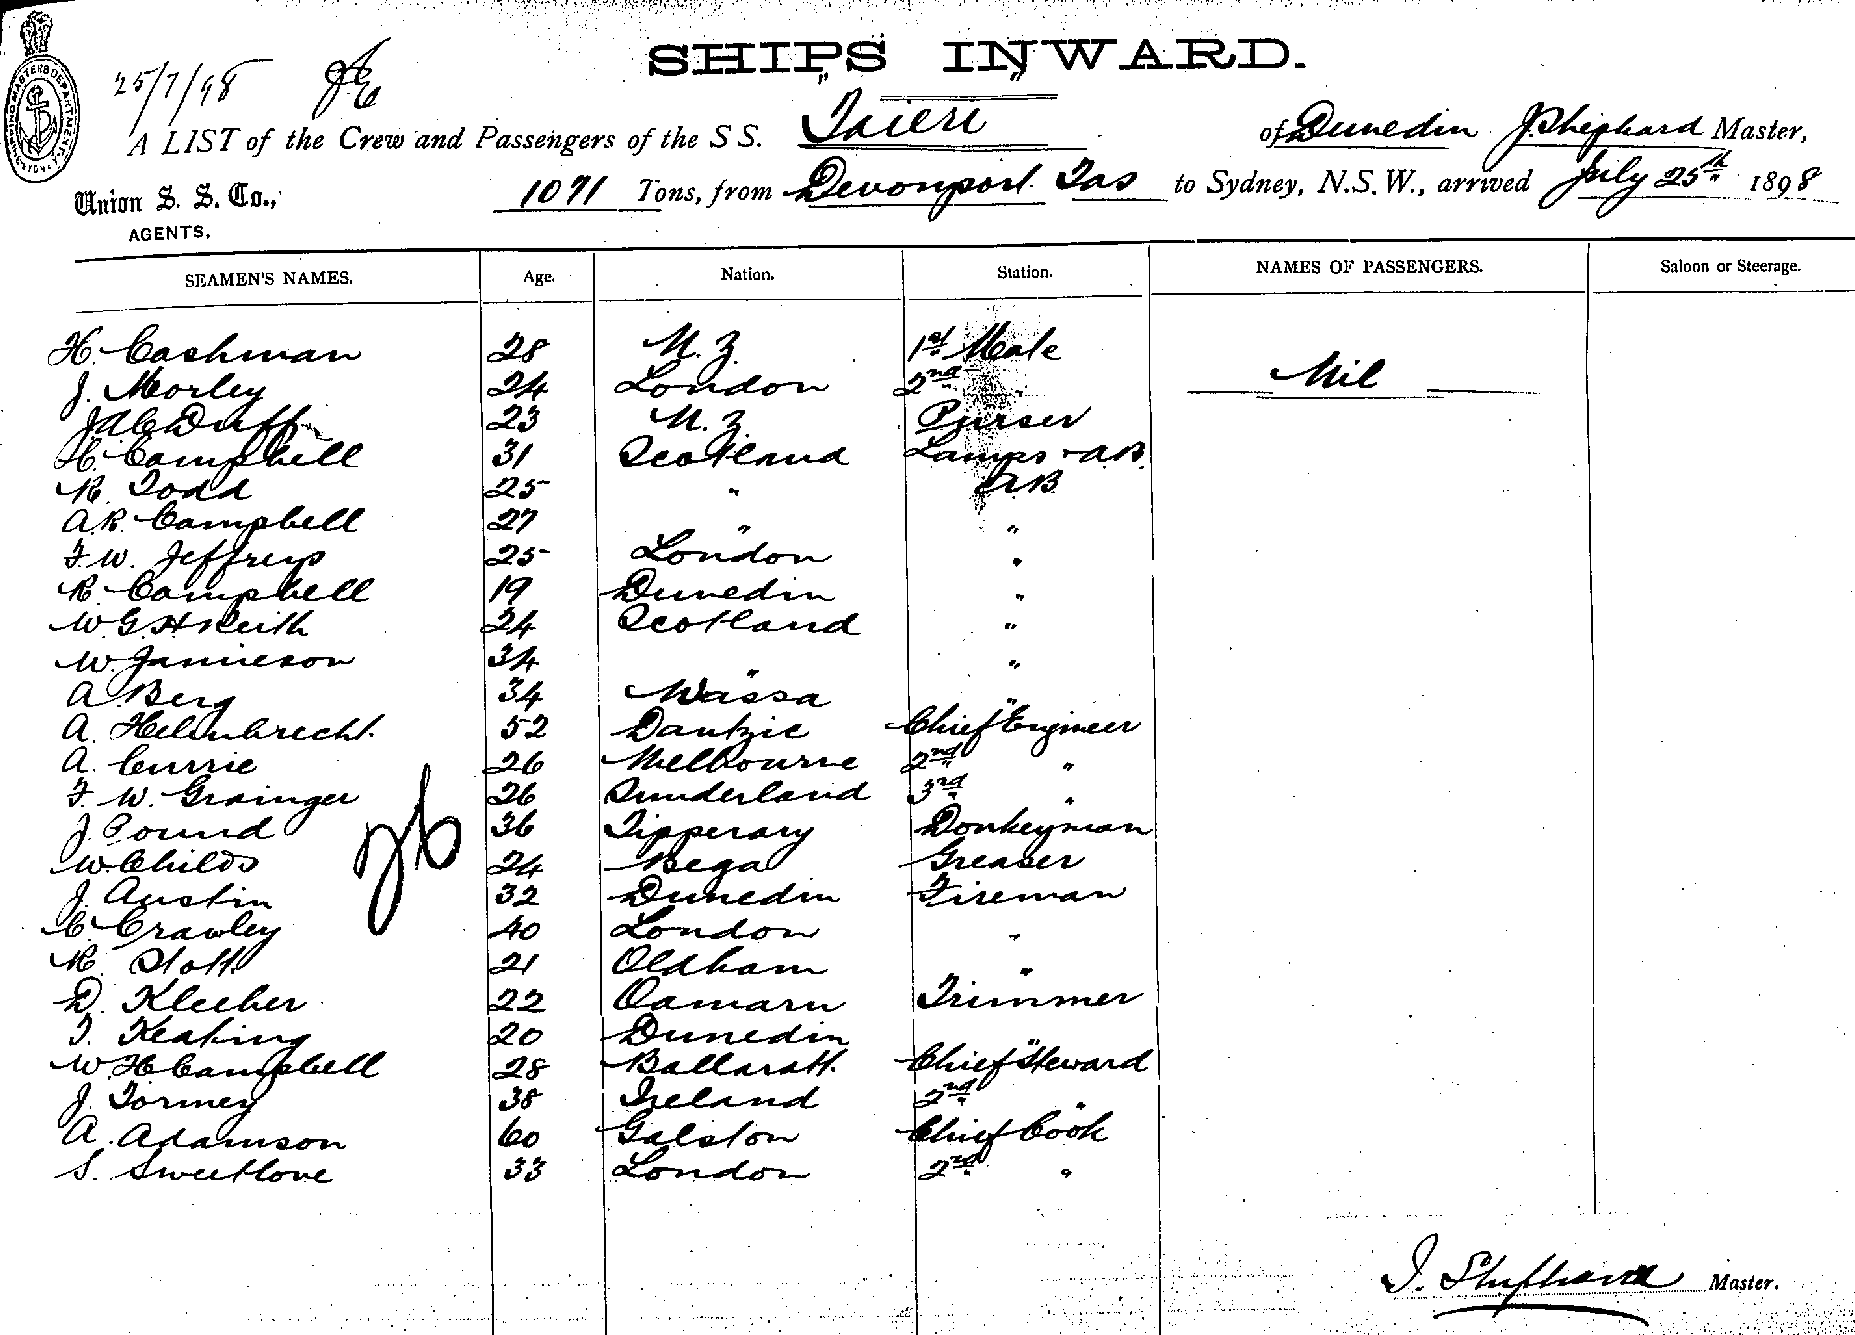 SHIPS INWARD.
25/7/98
A LIST of the Crew and Passengers of the S S. Taieri of Dunedin J. Shephard Master,
Union S. S. Co., AGENTS. 1071 Tons, from Devonport Tas to Sydney, N.S.W., arrived July 25th 1898
SEAMEN'S NAMES. Age. Nation. Station. NAMES OF PASSENGERS. Saloon or Steerage.
H. Cashman 28 N.Z. 1st Mate
J. Morley 24 London 2nd " Nil
J.A.C. Duff 23 N.Z. Purser
H. Campbell 31 Scotland Lamps & A.B.
R. Todd 25 " A.B
A.R. Campbell 27 " "
F.W. Jeffreys 25 London "
R. Campbell 19 Dunedin "
W.G.H. Keith 24 Scotland "
W. Jamieson 34 " "
A. Berg 34 Wassa "
A. Helmbrecht. 52 Dantzic Chief Engineer
A. Currie 26 Melbourne 2nd "
F. W. Grainger 26 Sunderland 3rd "
J. Pound 36 Tipperary Donkeyman
W. Childs 24 Bega Greaser
J. Austin 32 Dunedin Fireman
C. Crawley 40 London "
R. Stott 21 Oldham "
D. Kleeber 22 Oamaru Trimmer
T. Keating 20 Dunedin "
W. H. Campbell 28 Ballaratt. Chief Steward
J. Tormey 38 Ireland 2nd "
A. Adamson 60 Galston Chief Cook
S. Sweetlove 33 London 2nd "
J. Shephard Master.